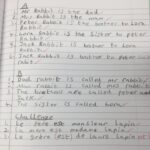 A
1. Mr Rabbit is the dad.
2. Mrs Rabbit is the mum.
3. Peter Rabbit is brother to Lora
Rabbit.
4. Lora Rabbit is the sister to Peter
Rabbit.
5. Jack Rabbit is brother to Lora
Rabbit.
6. Jack Rabbit is brother to Peter
B
1. Dad rabbit is called Mr rabbit.
2. Mum rabbit is called Mrs rabbit.
3. The brothers are called Peter and
Jack.
4. The sister is called Lora.
Challenge
1. Le père est monsieur lapin.
2. La mère est madame lapin.
3. La soeur est Laura lapin